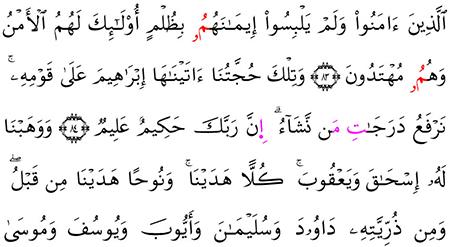 ٱلَّذِينَ ءَامَنُوا۟ وَلَمْ يَلْبِسُوٓا۟ إِيمَـٰنَهُمُۥ بِظُلْمٍ أُو۟لَـٰٓئِكَ لَهُمُ ٱلْأَمْنُ
وَهُمُۥ مُهْتَدُونَ ۝٨٣ وَتِلْكَ حُجَّتُنَآ ءَاتَيْنَـٰهَآ إِبْرَٰهِيمَ عَلَىٰ قَوْمِهِۦ ۚ
نَرْفَعُ دَرَجَـٰتِ مَن نَّشَآءُ ۗ إِنَّ رَبَّكَ حَكِيمٌ عَلِيمٌ ۝٨٤ وَوَهَبْنَا
لَهُۥٓ إِسْحَـٰقَ وَيَعْقُوبَ ۚ كُلًّا هَدَيْنَا ۚ وَنُوحًا هَدَيْنَا مِن قَبْلُ ۖ
وَمِن ذُرِّيَّتِهِۦ دَاوُۥدَ وَسُلَيْمَـٰنَ وَأَيُّوبَ وَيُوسُفَ وَمُوسَىٰ